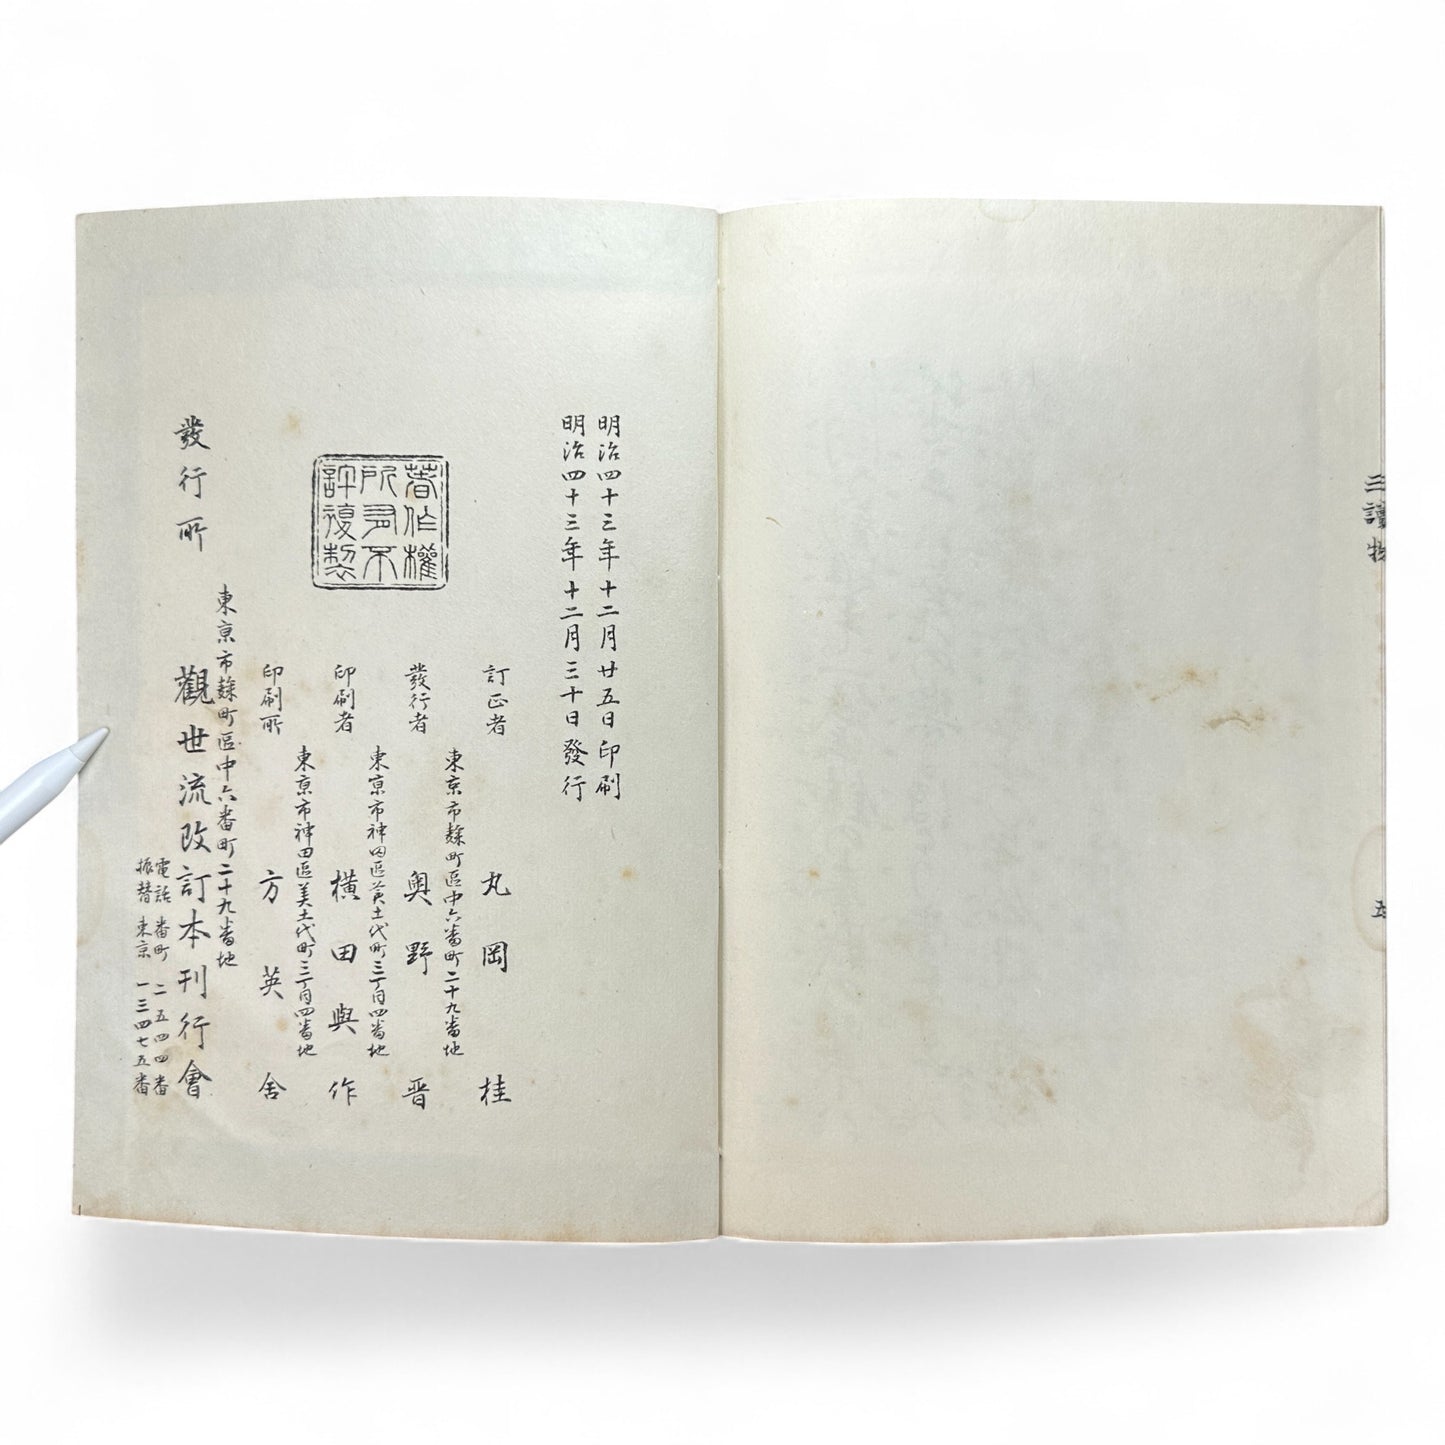 三讀物
五
明治四十三年十二月廿五日印刷
明治四十三年十二月三十日發行
訂正者
丸岡桂
東京市麹町區中六番町二十九番地
發行者
奥野晋
東京市神田區美土代町三丁目四番地
印刷者
横田與作
東京市神田區美土代町三丁目四番地
印刷所
方英舍
著作權
所有不
許複製
發行所
東京市麹町區中六番町二十九番地
觀世流改訂本刊行會
電話番町二五四四番
振替東京一三四七五番